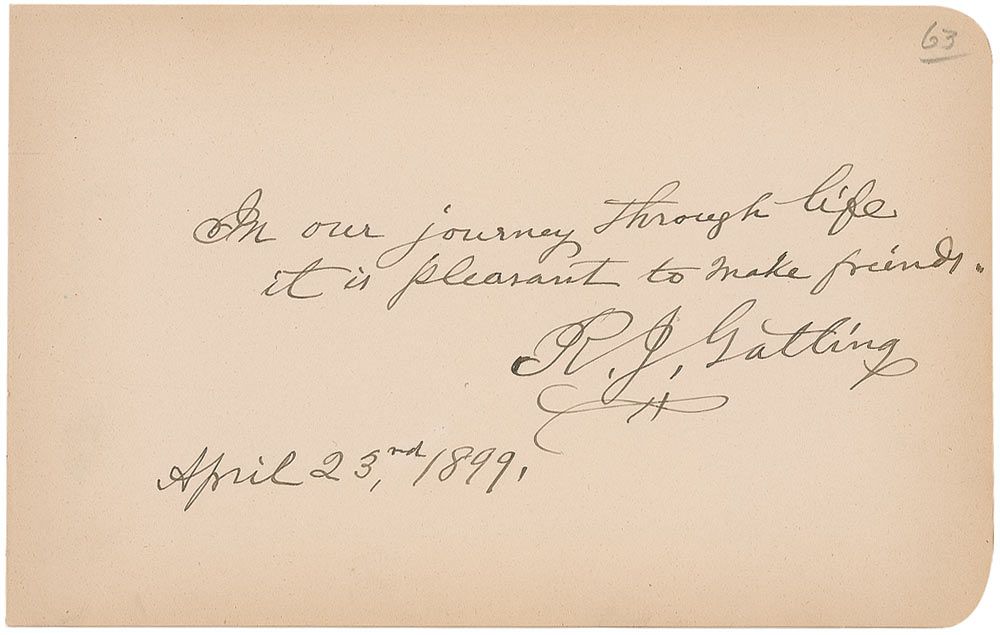 63
In our journey through life
it is pleasant to make friends.
R. J. Gatling
April 23,rd 1899.